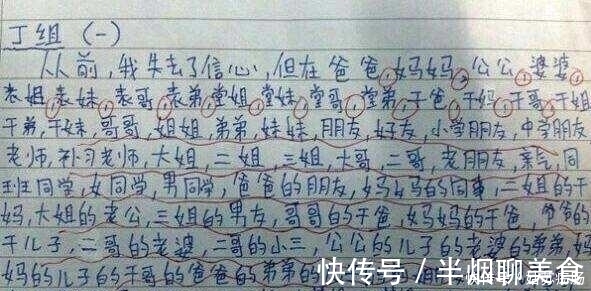 丁组(一)
从前,我失去了信心,但在爸爸,妈妈,公公,婆婆
表姐,表妹,表哥,表弟,堂姐,堂妹,堂哥,堂弟,干爸,干妈,干哥,干姐
干弟,干妹,哥哥,姐姐,弟弟,妹妹,朋友,好友,小学朋友,中学朋友,
老师,补习老师,大姐,二姐,三姐,大哥,二哥,老朋友,亲戚,同
班同学,女同学,男同学,爸爸的朋友,妈妈的同事,二姐的干
妈,大姐的老公,三姐的男友,哥哥的干爸,妈妈的干爸,爷爷的
干儿子,二哥的老婆,二哥的小三,公公的儿子的老婆的弟弟,妈
妈的儿子的干哥的爸爸的弟弟的
快传号/半烟聊美食